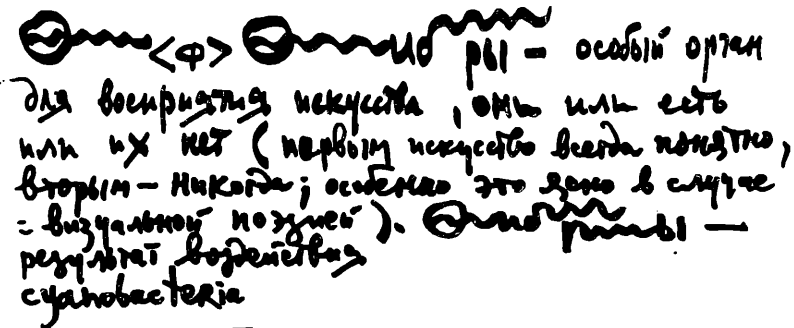 <ф> ио ры – особый орган
для восприятия искусства, они или есть
или их нет (первым искусство всегда понятно,
вторым – никогда; особенно это ясно в случае
= визуальной поэзией). ио ры —
результат воздействия
cyanobacteria